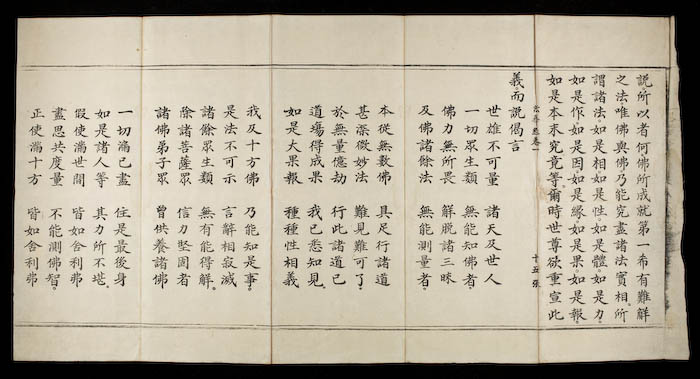 說所以者何佛所成就第一希有難解
之法唯佛與佛乃能究盡諸法實相。所
謂諸法。如是相。如是性。如是體。如是力。
如是作。如是因。如是緣。如是果。如是報。
如是本末究竟等。爾時世尊欲重宣此
卷一 十五張
義而說偈言
世雄不可量 諸天及世人
一切眾生類 無能知佛者。
佛力無所畏 解脫諸三昧
及佛諸餘法 無能測量者。
本從無數佛 具足行諸道
甚深微妙法 難見難可了。
於無量億劫 行此諸道已
道場得成果 我已悉知見。
如是大果報 種種性相義
我及十方佛 乃能知是事。
是法不可示 言辭相寂滅
諸餘眾生類 無有能得解。
除諸菩薩眾 信力堅固者
諸佛弟子眾 曾供養諸佛
一切漏已盡 住是最後身
如是諸人等 其力所不堪。
假使滿世間 皆如舍利弗
盡思共度量 不能測佛智。
正使滿十方 皆如舍利弗